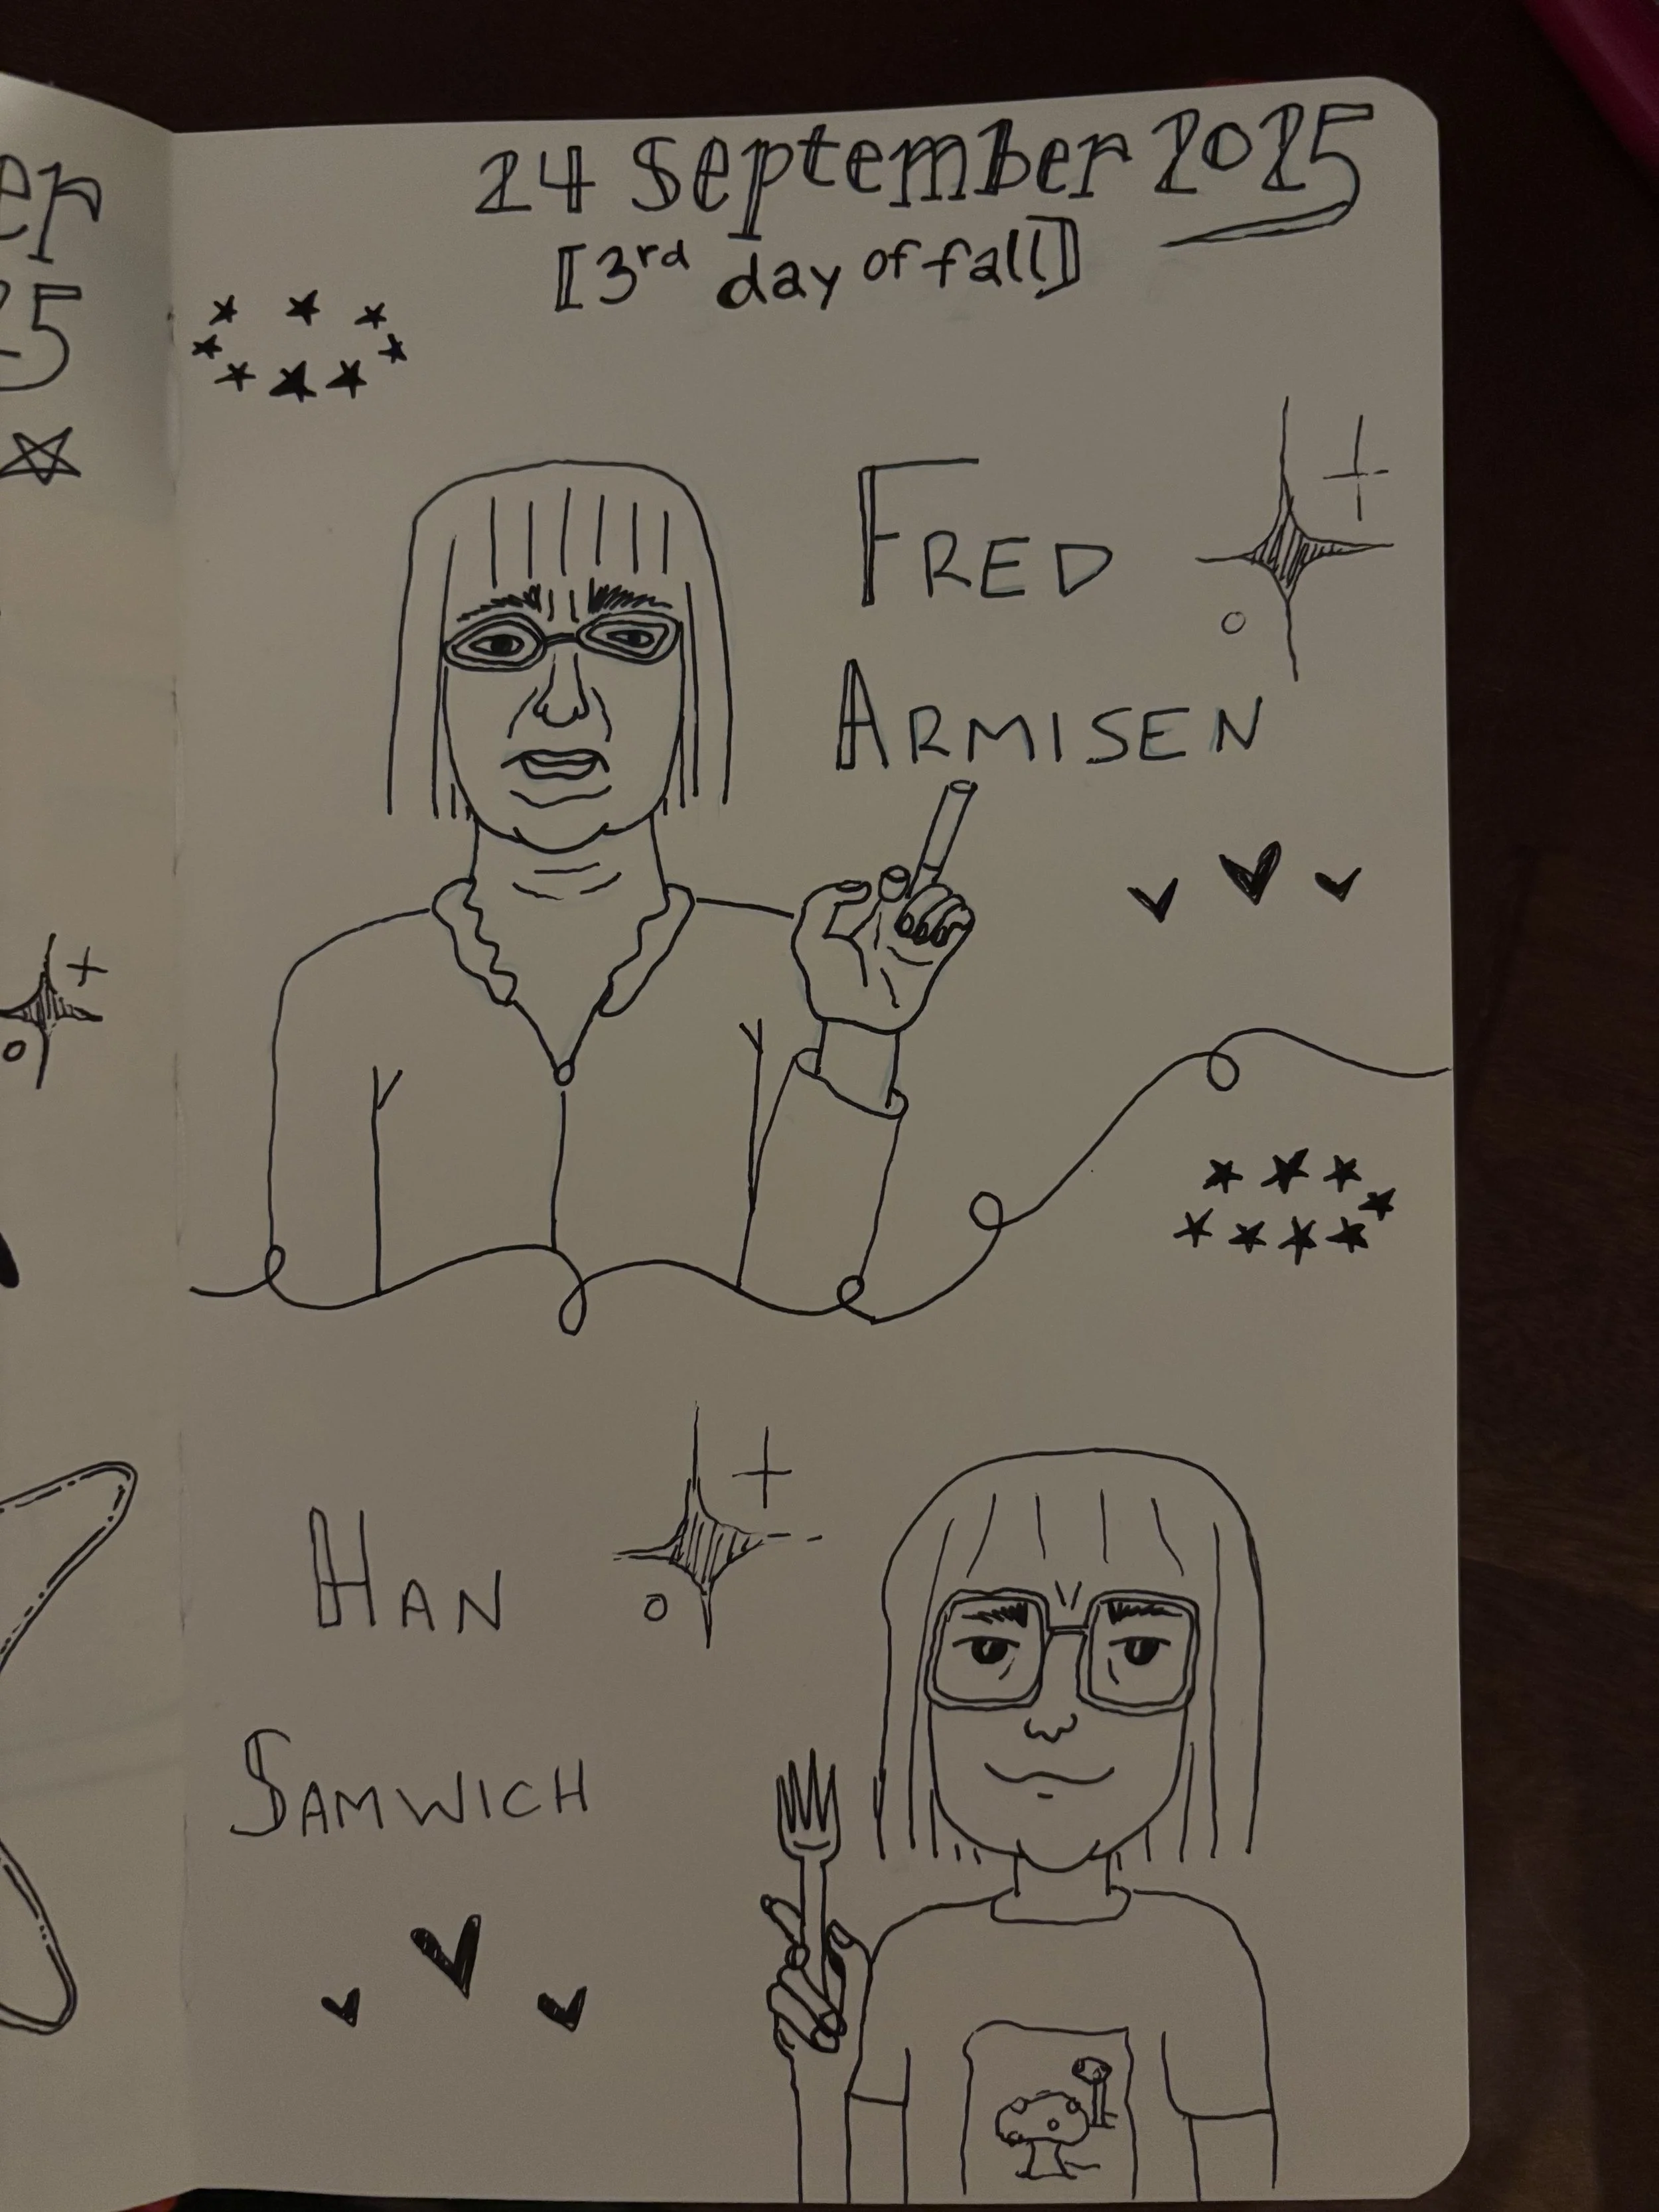 er
25
24 September 2025
[3rd day of fall]
FRED
ARMISEN
HAN
SAMWICH